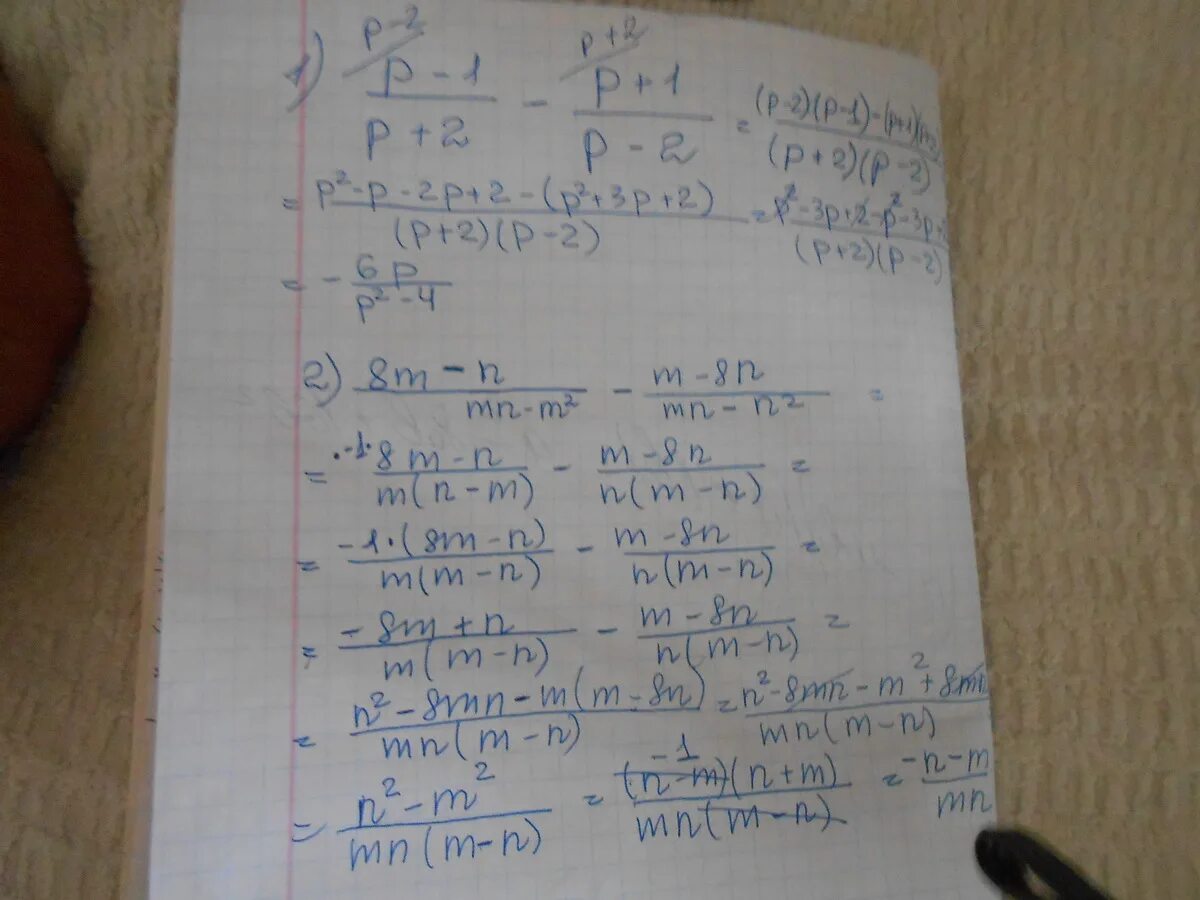 p-2 p+2
1) (p-1)/(p+2) - (p+1)/(p-2) = ((p-2)(p-1)-(p+1)(p+2))/((p+2)(p-2))
= (p²-p-2p+2-(p²+3p+2))/((p+2)(p-2)) = (p²-3p+2-p²-3p-2)/((p+2)(p-2))
= - 6p/(p²-4)
2) (8m-n)/(mn-m²) - (m-8n)/(mn-n²) =
= ·-1· (8m-n)/(m(n-m)) - (m-8n)/(n(m-n)) =
= (-1·(8m-n))/(m(m-n)) - (m-8n)/(n(m-n)) =
= (-8m+n)/(m(m-n)) - (m-8n)/(n(m-n)) =
= (n²-8mn-m(m-8n))/(mn(m-n)) = (n²-8mn-m²+8mn)/(mn(m-n))
-1
= (n²-m²)/(mn(m-n)) = ((n-m)(n+m))/(mn(m-n)) = (-n-m)/(mn)